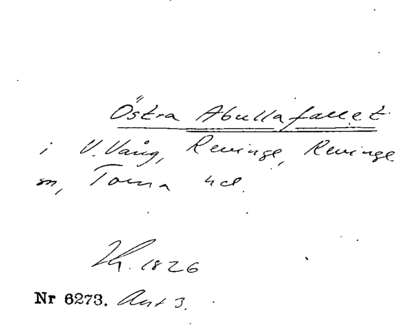 Östra Abullafallet
i V. Vång, Revinge, Revinge
sn, Torna hd.
1826
Nr 6273.